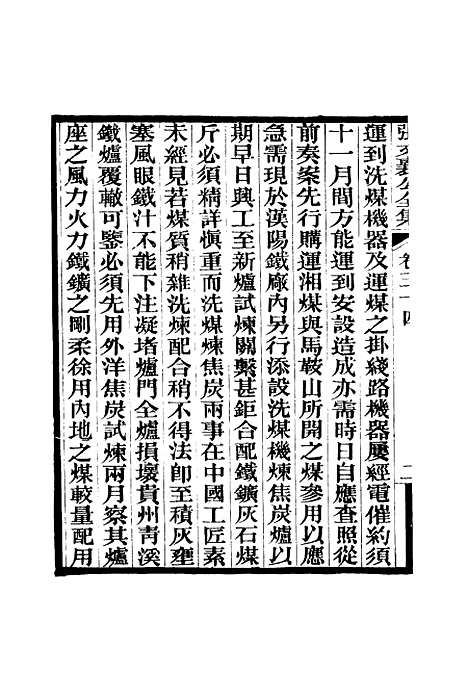 張文襄公全集 卷三十四 二
運到洗煤機器及運煤之掛綫路機器屢經電催約須
十一月間方能運到安設造成亦需時日自應查照從
前奏案先行購運湘煤與馬鞍山所開之煤參用以應
急需現於漢陽鐵廠內另行添設洗煤機煉焦炭爐以
期早日興工至新爐試煉關繫甚鉅合配鐵鑛灰石煤
斤必須精詳慎重而洗煤煉焦炭兩事在中國工匠素
未經見若煤質稍雜洗煉配合稍不得法卽至積灰壅
塞風眼鐵汁不能下注凝堵爐門全爐損壞貴州靑溪
鐵爐覆轍可鑒必須先用外洋焦炭試煉兩月察其爐
座之風力火力鐵鑛之剛柔徐用內地之煤較量配用